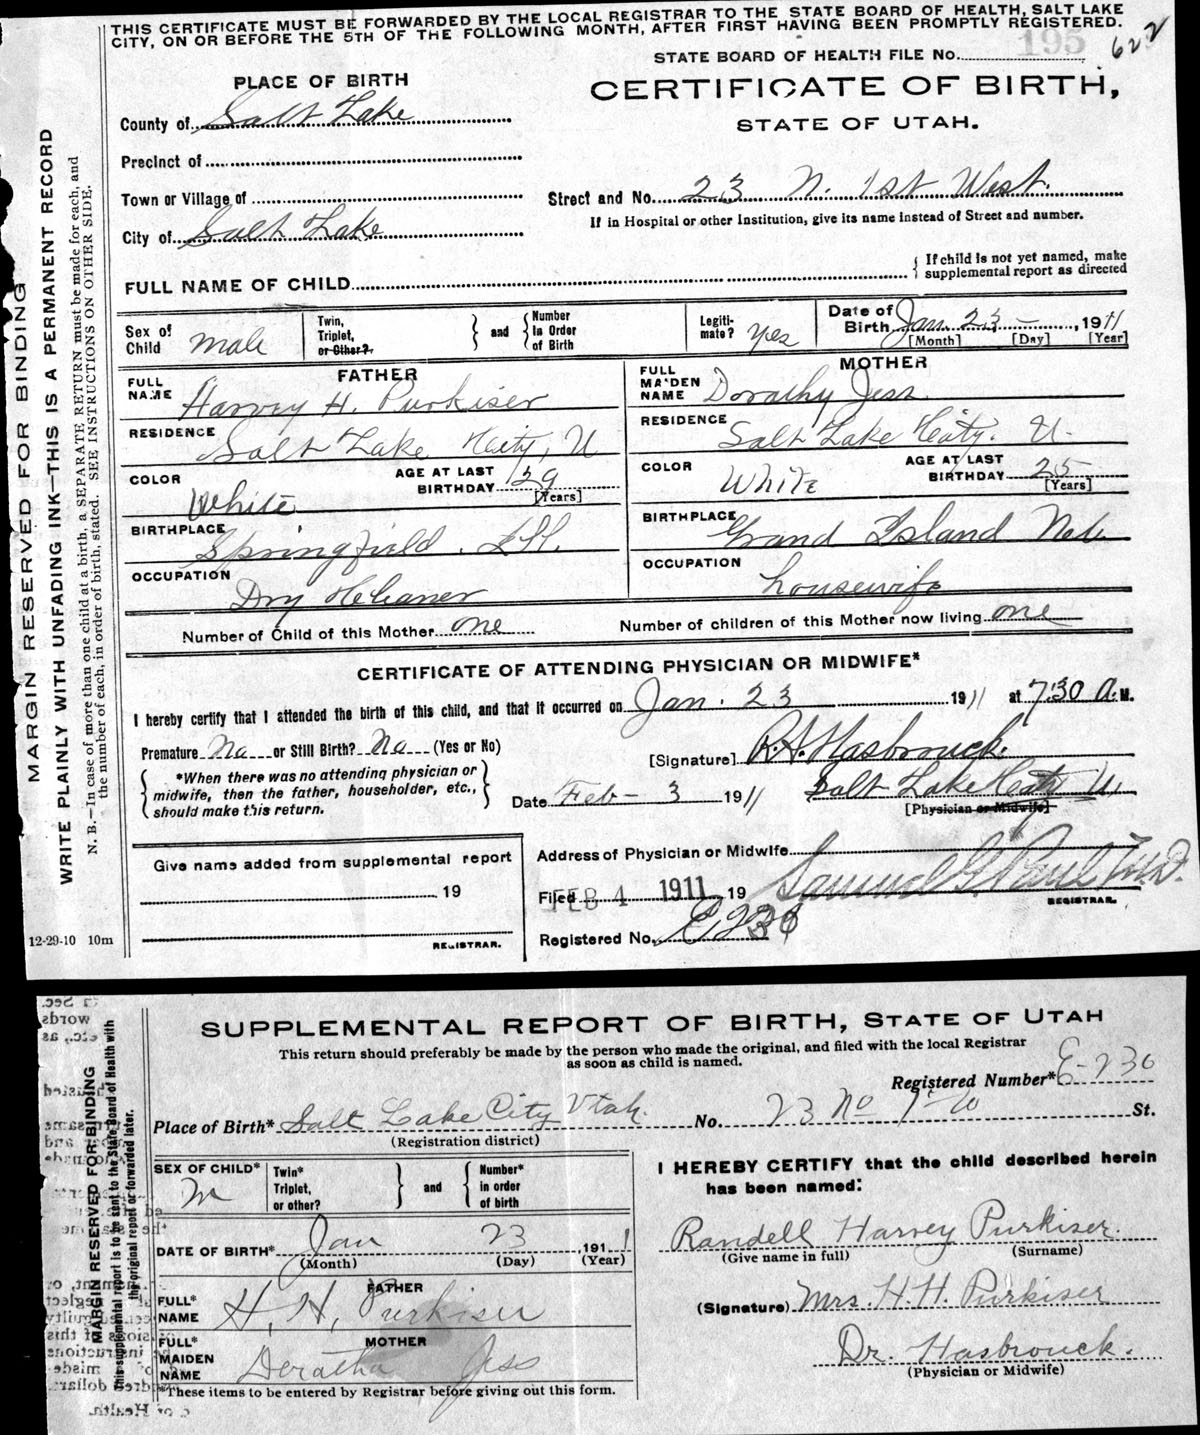 THIS CERTIFICATE MUST BE FORWARDED BY THE LOCAL REGISTRAR TO THE STATE BOARD OF HEALTH, SALT LAKE
CITY, ON OR BEFORE THE 5TH OF THE FOLLOWING MONTH, AFTER FIRST HAVING BEEN PROMPTLY REGISTERED.
STATE BOARD OF HEALTH FILE No. 195 622
PLACE OF BIRTH
CERTIFICATE OF BIRTH,
STATE OF UTAH.
County of Salt Lake
Precinct of
Town or Village of
Street and No. 23 N. 1st West.
If in Hospital or other Institution, give its name instead of Street and number.
City of Salt Lake
FULL NAME OF CHILD
{ If child is not yet named, make
supplemental report as directed
Sex of Child male
Twin, Triplet, or Other? } and { Number In Order of Birth
Legiti-mate? yes
Date of Birth Jan. 23 - , 1911
[Month] [Day] [Year]
FATHER
MOTHER
FULL NAME Harvey H. Purkiser
FULL MAIDEN NAME Dorathy Jess
RESIDENCE Salt Lake City, U
RESIDENCE Salt Lake City. U.
COLOR White AGE AT LAST BIRTHDAY 29 [Years]
COLOR White AGE AT LAST BIRTHDAY 25 [Years]
BIRTHPLACE Springfield. Ill.
BIRTHPLACE Grand Island Neb.
OCCUPATION Dry Cleaner
OCCUPATION housewife
Number of Child of this Mother one
Number of children of this Mother now living one
CERTIFICATE OF ATTENDING PHYSICIAN OR MIDWIFE*
I hereby certify that I attended the birth of this child, and that it occurred on Jan. 23 1911 at 7:30 a.M.
Premature No or Still Birth? No (Yes or No)
[Signature] R.A. Hasbrouck.
{ *When there was no attending physician or
midwife, then the father, householder, etc.,
should make this return. }
Date Feb - 3 1911
Salt Lake City U.
[Physician or Midwife]
Give name added from supplemental report
19
REGISTRAR.
Address of Physician or Midwife
Filed FEB 4 1911 19 Samuel G. Paul M.D.
REGISTRAR.
Registered No. E 236
12-29-10 10m
MARGIN RESERVED FOR BINDING
WRITE PLAINLY WITH UNFADING INK—THIS IS A PERMANENT RECORD
N. B.—In case of more than one child at a birth, a SEPARATE RETURN must be made for each, and
the number of each, in order of birth, stated. SEE INSTRUCTIONS ON OTHER SIDE.
SUPPLEMENTAL REPORT OF BIRTH, STATE OF UTAH
This return should preferably be made by the person who made the original, and filed with the local Registrar
as soon as child is named.
Registered Number* E-230
Place of Birth* Salt Lake City Utah. No. 23 No 1 W St.
(Registration district)
SEX OF CHILD* M
Twin* Triplet, or other? } and { Number* in order of birth
I HEREBY CERTIFY that the child described herein
has been named:
DATE OF BIRTH* Jan 23 1911
(Month) (Day) (Year)
Randell Harvey Purkiser.
(Give name in full) (Surname)
FATHER
FULL* NAME H. H. Purkiser
(Signature) Mrs. H. H. Purkiser
MOTHER
FULL* MAIDEN NAME Deratha Jess
Dr. Hasbrouck.
(Physician or Midwife)
*These items to be entered by Registrar before giving out this form.
MARGIN RESERVED FOR BINDING
This supplemental report is to be sent to the State Board of Health with
the original report or forwarded later.